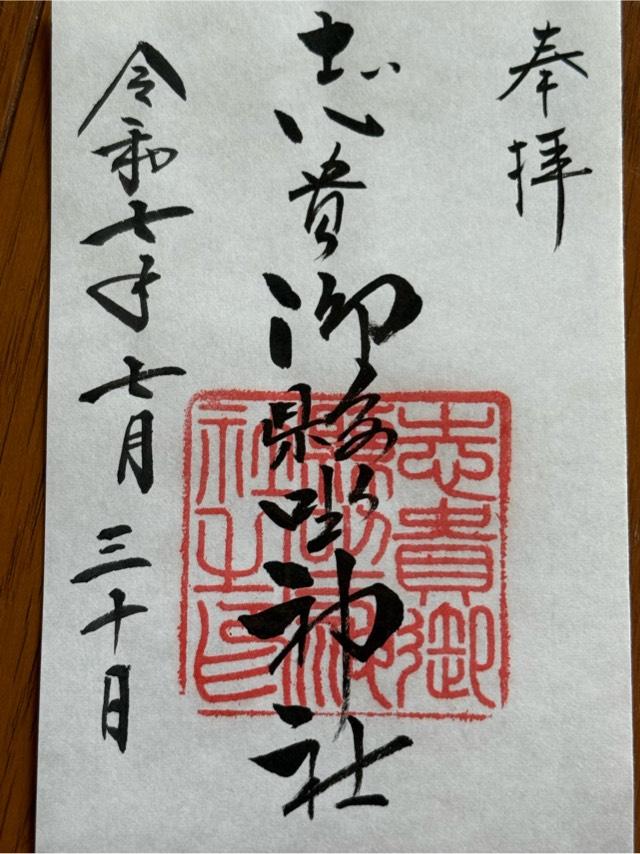 奉拝
志貴御縣坐神社
令和七年七月三十日
志貴御
社之印